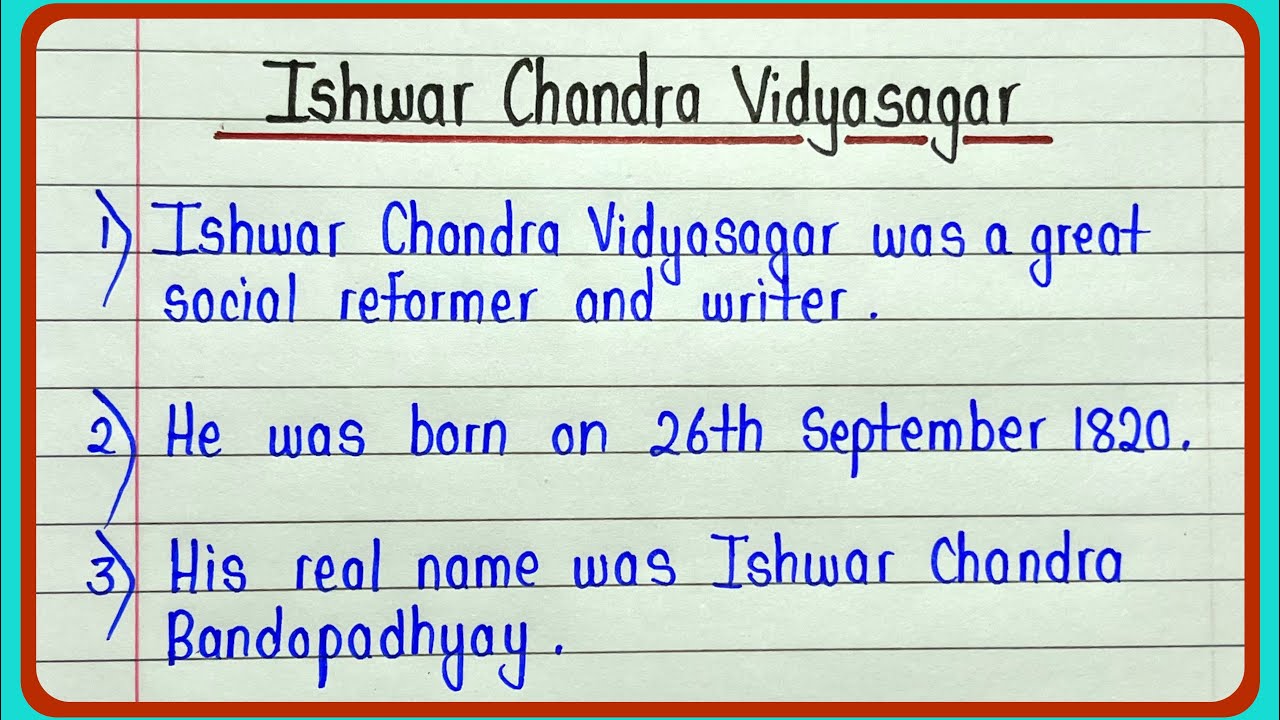 Ishwar Chandra Vidyasagar
1) Ishwar Chandra Vidyasagar was a great
social reformer and writer.
2) He was born on 26th September 1820.
3) His real name was Ishwar Chandra
Bandopadhyay.